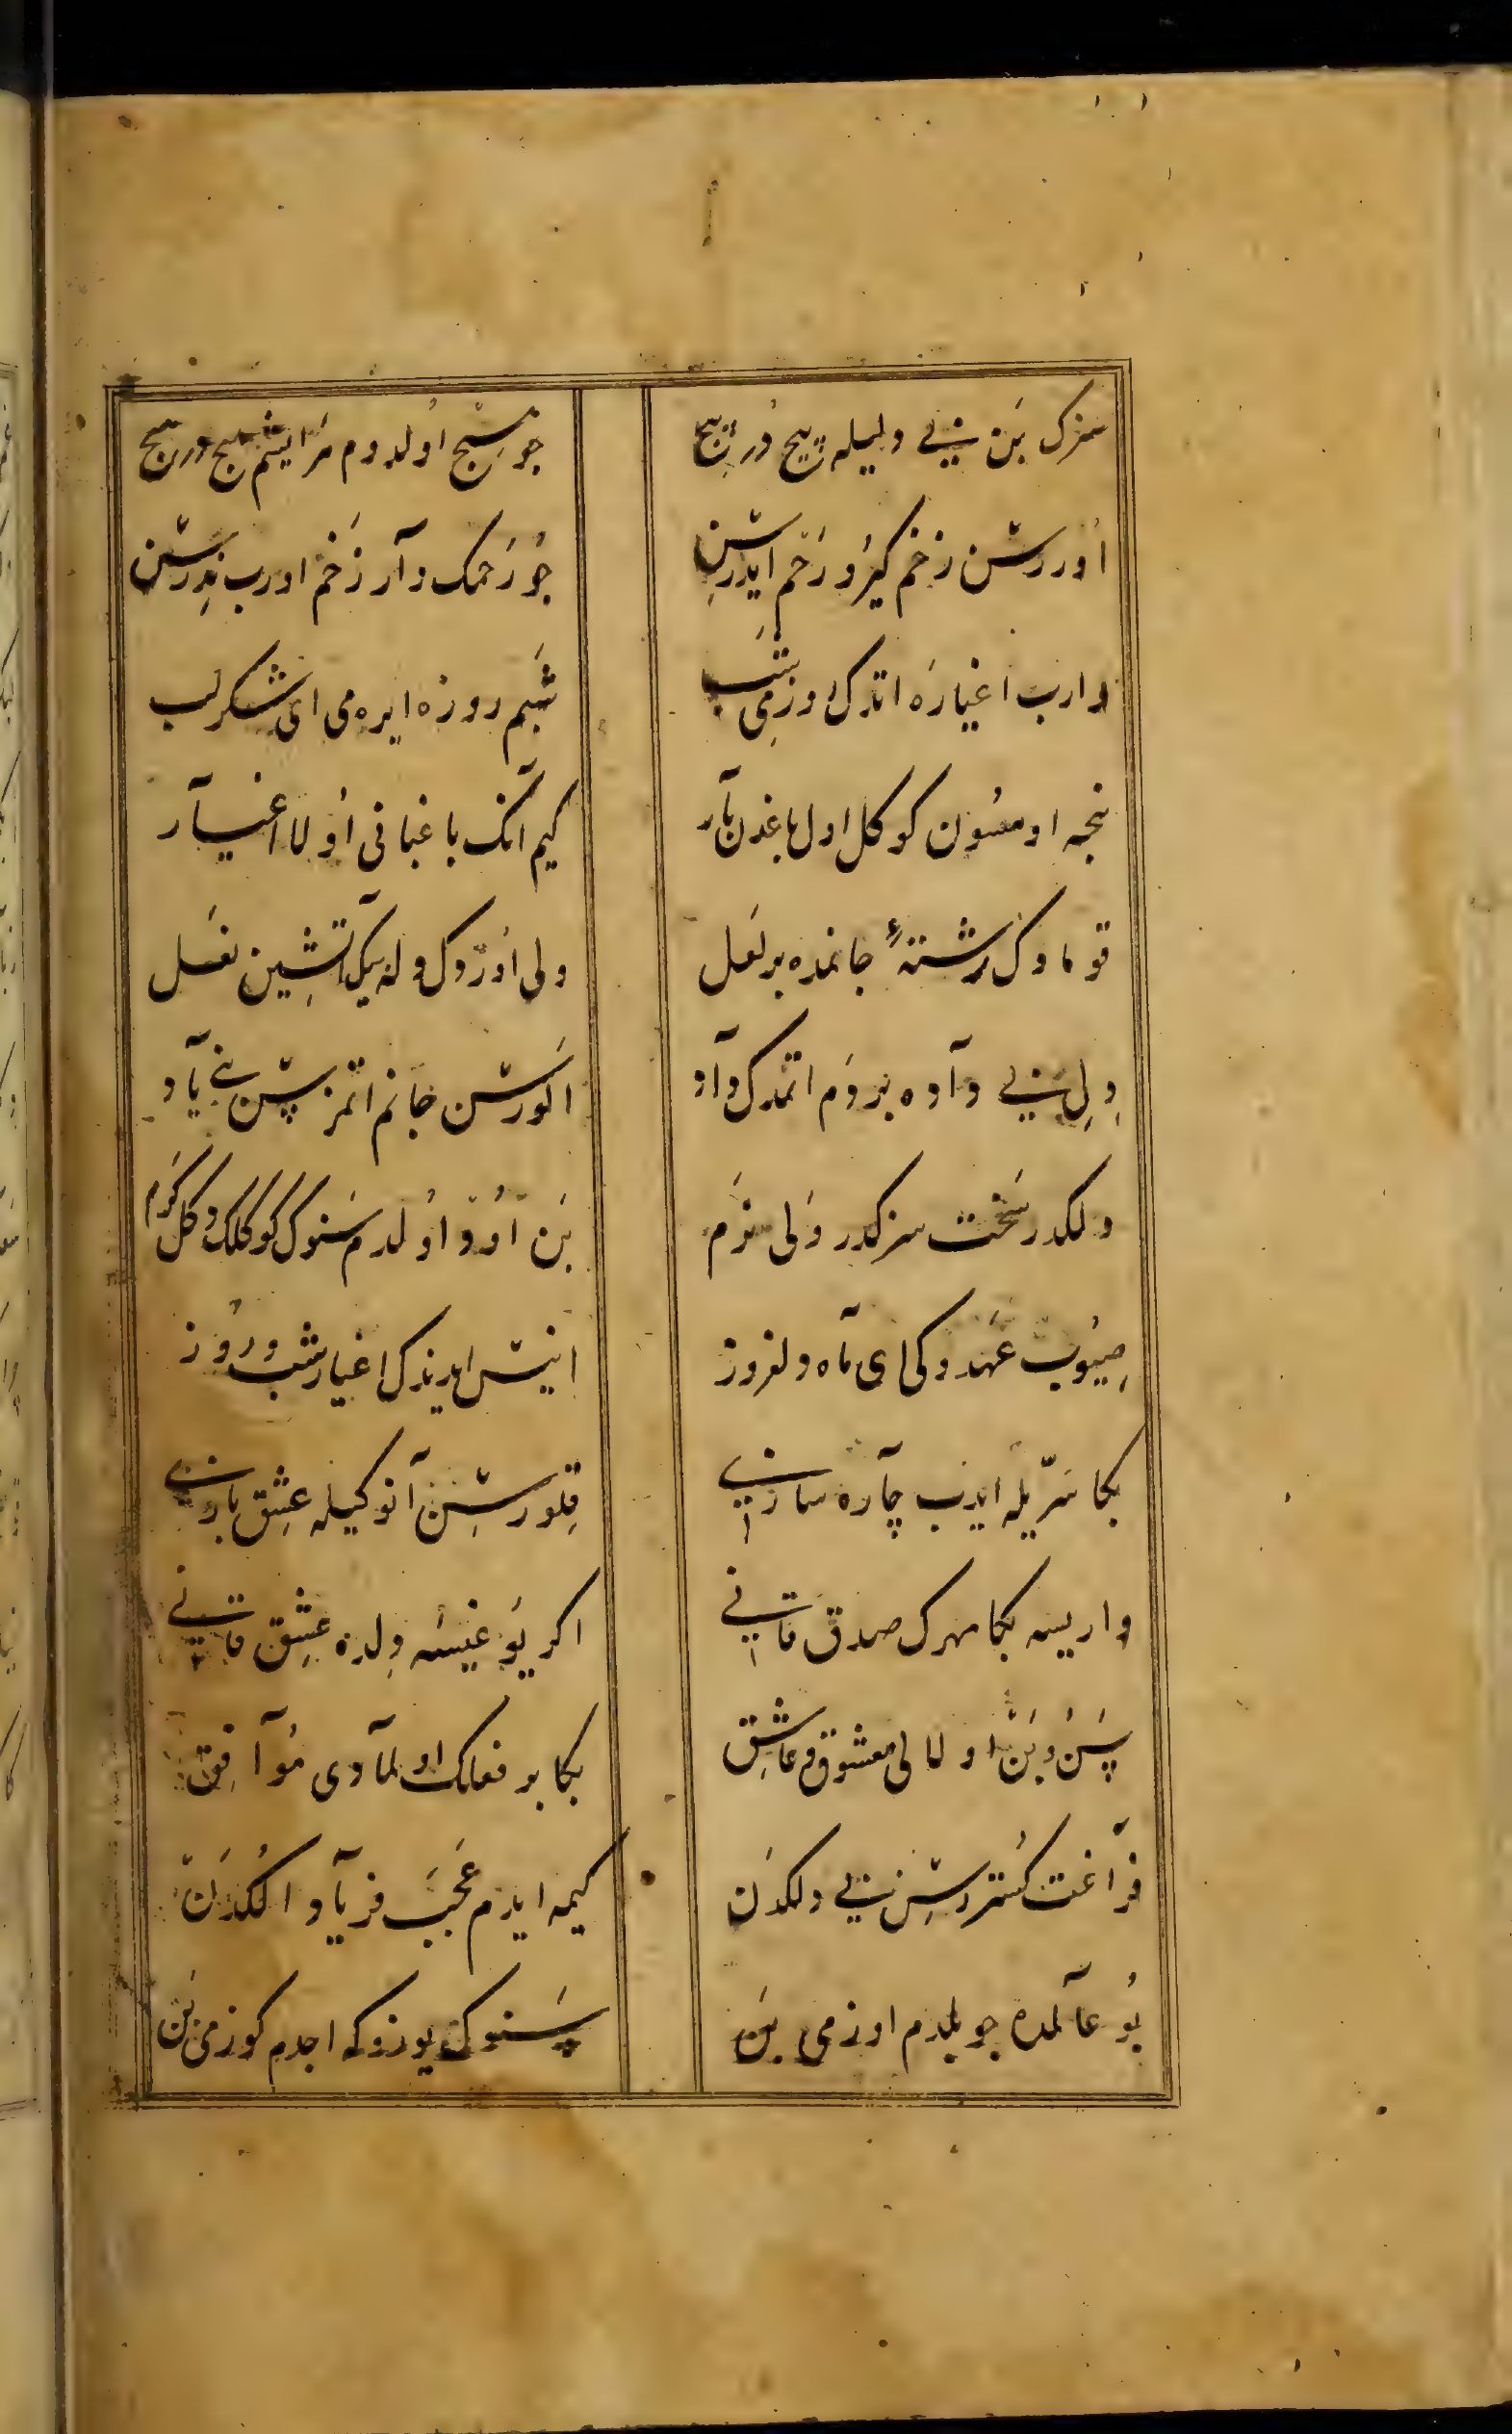 سزک بَن بنی دلیله پیچ دُر پیچ
چو هیچ اُولدوم مَرا ایشم هیچ در هیچ
اُوررسْن زخم گیرُو رَحْم ایدرسِن
چُو رَحمک وآر زَخم اورب نِدرسْن
وارب اغیارَه اتدک اوزمِی تَب
شَبم روزه ایره می ای شکر لب
نجه اومسُون کوکل اول باغدن بآر
کیم آنک باغبانی اُولا اغیآر
قومادک رشتهٔ جانمده بر لَعل
ولی اوُردوک دله یک آتشِین نعَل
دِلِ بنی دآده بر دَم اتمدک دآد
اکورسْن جانم اتمز سْن بنی یآد
دلکدر سَخت سزکدر وَلی نرَم
بَن اُودو اوُلدم سَنوک کوکلک دکل کرَم
صِیُوب عَهدوکی ای مآه دلفروز
انیس ایدندک اغیار شب و رُوز
بکا سَرّیله ایدب چآره سازی
قِلورسِن آنوکیله عِشِق بازی
واریسه بکا مهرک صدق قانی
اکر یوُغیسَه دِلده عشِق قانی
سَن وُ بَن اولالی معشوق و عاشِق
بکا بر فعلک اولمآدی مُوآفِق
فرآغت کُسترسِن بنی دلکدَن
کیمه ایدم عَجَب فریآد الکُدَن
بُو عآلمده چو بلدم اوزمی بَن
سَنوک یوزوکه اچدم کوزمی بَن